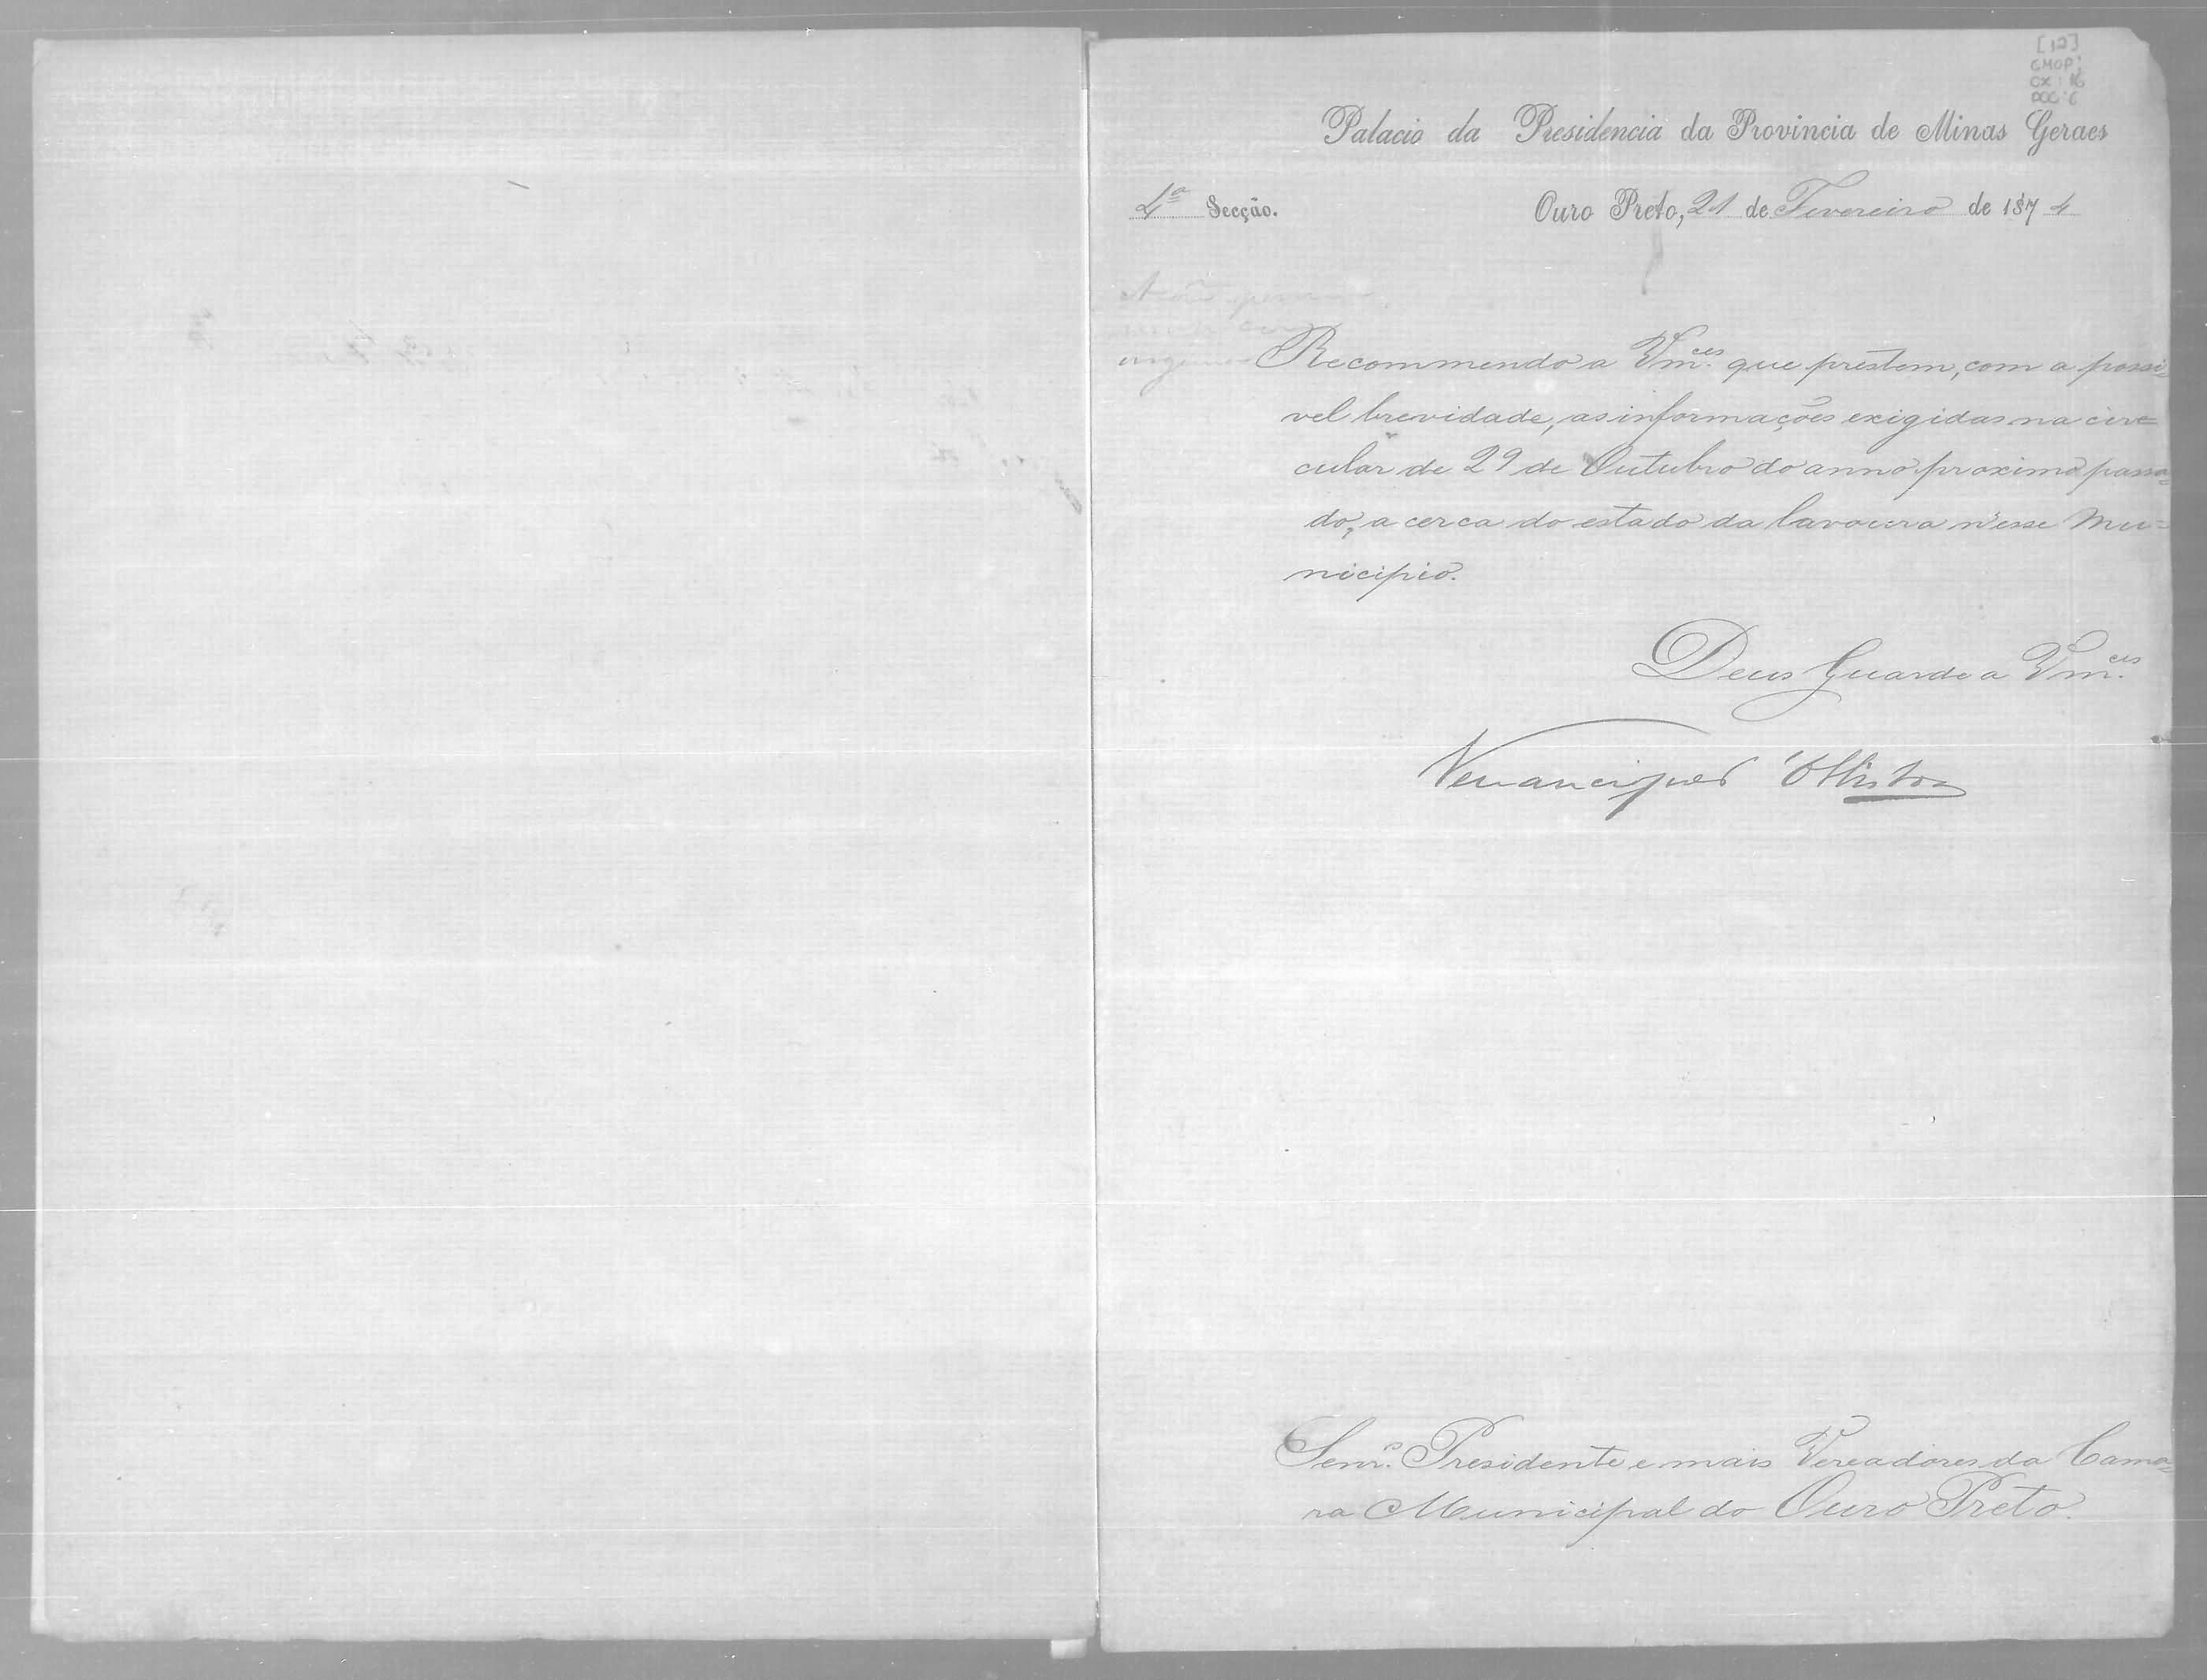 [12]
CMOP;
CX: 16
DOC: 6
Palacio da Presidencia da Provincia de Minas Geraes
4ª Secção.
Ouro Preto, 21 de Fevereiro de 1874
Recommendo a Vm.ces que prestem, com a possi=
vel brevidade, as informações exigidas na cir=
cular de 29 de Outubro do anno proximo passa=
do, a cerca do estado da lavoura n'esse Mu=
nicipio.
Deus Guarde a Vm.ces
Senr.s Presidente e mais Vereadores da Cama=
ra Municipal do Ouro Preto.